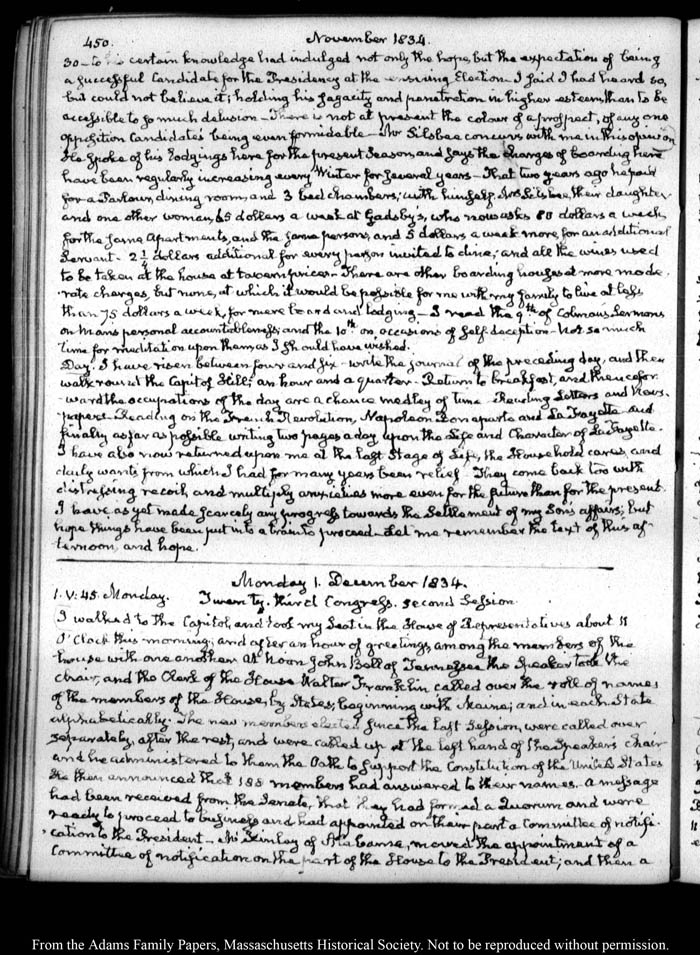 450. November 1834.
30 to certain knowledge had indulged not only the hope, but the expectation of being
a successful Candidate for the Presidency at the ensuing Election. I said I had heard so,
but could not believe it; holding his sagacity and penetration in higher esteem, than to be
accessible to so much delusion. There is not at present the colour of a prospect, of any one
opposition Candidate's being even formidable. Mr Silsbee concurs with me in this opinion.
He spoke of his lodgings here for the present Season, and says the charges of boarding here
have been regularly increasing every Winter for several years. That two years ago he paid
for a Parlour, dining room, and 3 bed chambers, with himself, Mrs Silsbee, their daughter
and one other woman, 65 dollars a week at Gadsby's, who now asks 80 dollars a week,
for the same apartments, and the same persons, and 5 dollars a week more, for an additional
servant. 2 1/4 dollars additional for every person invited to dine; and all the wines used
to be taken at the house at tavern prices. There are other boarding houses at more mode-
rate charges, but none, at which it would be possible for me with my family to live at less
than 75 dollars a week, for mere board and lodging. I read the 9th of Colman's Sermons
on Man's personal accountableness, and the 10th on occasions of Self-deception. Not so much
time for meditation upon them as I should have wished.
Day. I have risen between four and six. write the journal of the preceding day, and then
walk round the Capitol Hill; an hour and a quarter. Return to breakfast, and thencefor-
ward the occupations of the day are a chance medley of time. Reading Letters and News-
papers. Reading on the French Revolution, Napoleon Bonaparte and La Fayette. And
finally as far as possible writing two pages a day upon the Life and Character of La Fayette.
I have also now returned upon me at the last Stage of Life, the Household cares, and
daily wants from which I had for many years been relief. They come back too with
distressing recoil, and multiply anxieties more even for the future than for the present.
I have as yet made scarcely any progress towards the Settlement of my Son's affairs; but
hope things have been put into a train to proceed. Let me remember the text of this af-
ternoon, and hope.
Monday 1. December 1834.
I. V:45. Monday. Twenty-third Congress. second Session.
I walked to the Capitol, and took my Seat in the House of Representatives about 11
O'Clock this morning; and after an hour of greetings, among the members of the
house with one another at Noon John Bell of Tennessee the Speaker took the
chair, and the Clerk of the House Walter Franklin called over the roll of names
of the members of the House, by States; beginning with Maine; and in each State
alphabetically. The new members elected since the last Session, were called over
separately, after the rest, and were called up at the left hand of the Speaker's chair
and he administered to them the Oath to support the Constitution of the United States
He then announced that 188 members had answered to their names. a message
had been received from the Senate, that they had formed a Quorum and were
ready to proceed to business and had appointed on their part a Committee of notifi-
cation to the President. Mr McKinley of Alabama, moved the appointment of a
Committee of notification on the part of the House to the President; and then a
From the Adams Family Papers, Massachusetts Historical Society. Not to be reproduced without permission.